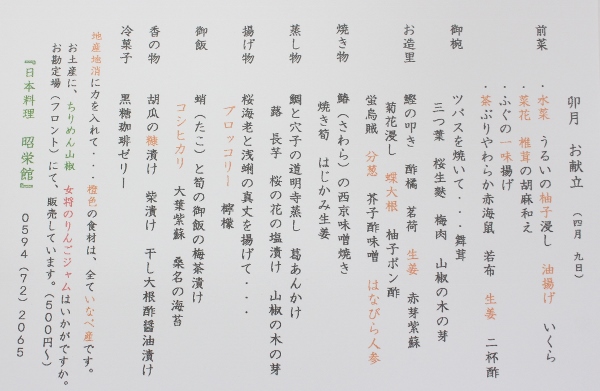 卯月 お献立 (四月 九日)
前菜 ・水菜 うるいの柚子浸し 油揚げ いくら
・菜花 椎茸の胡麻和え
・ふぐの一味揚げ
・茶ぶりやわらか赤海鼠 若布 生姜 二杯酢
御椀 ツバスを焼いて・・・舞茸
三つ葉 桜生麩 梅肉 山椒の木の芽
お造里 鰹の叩き 酢橘 茗荷 生姜 赤芽紫蘇
菊花浸し 蝶大根 柚子ポン酢
蛍烏賊 分葱 芥子酢味噌 はなびら人参
焼き物 鰆(さわら)の西京味噌焼き
焼き筍 はじかみ生姜
蒸し物 鯛と穴子の道明寺蒸し 葛あんかけ
蕗 長芋 桜の花の塩漬け 山椒の木の芽
揚げ物 桜海老と浅蜊の真丈を揚げて・・・
ブロッコリー 檸檬
御飯 蛸(たこ)と筍の御飯の梅茶漬け
コシヒカリ 大葉紫蘇 桑名の海苔
香の物 胡瓜の糠漬け 柴漬け 干し大根酢醤油漬け
冷菓子 黒糖珈琲ゼリー
地産地消に力を入れて・・・橙色の食材は、全ていなべ産です。
お土産に、ちりめん山椒 女将のりんごジャムはいかがですか。
お勘定場(フロント)にて、販売しています。(500円～)
『日本料理 昭栄館』 0594(72)2065